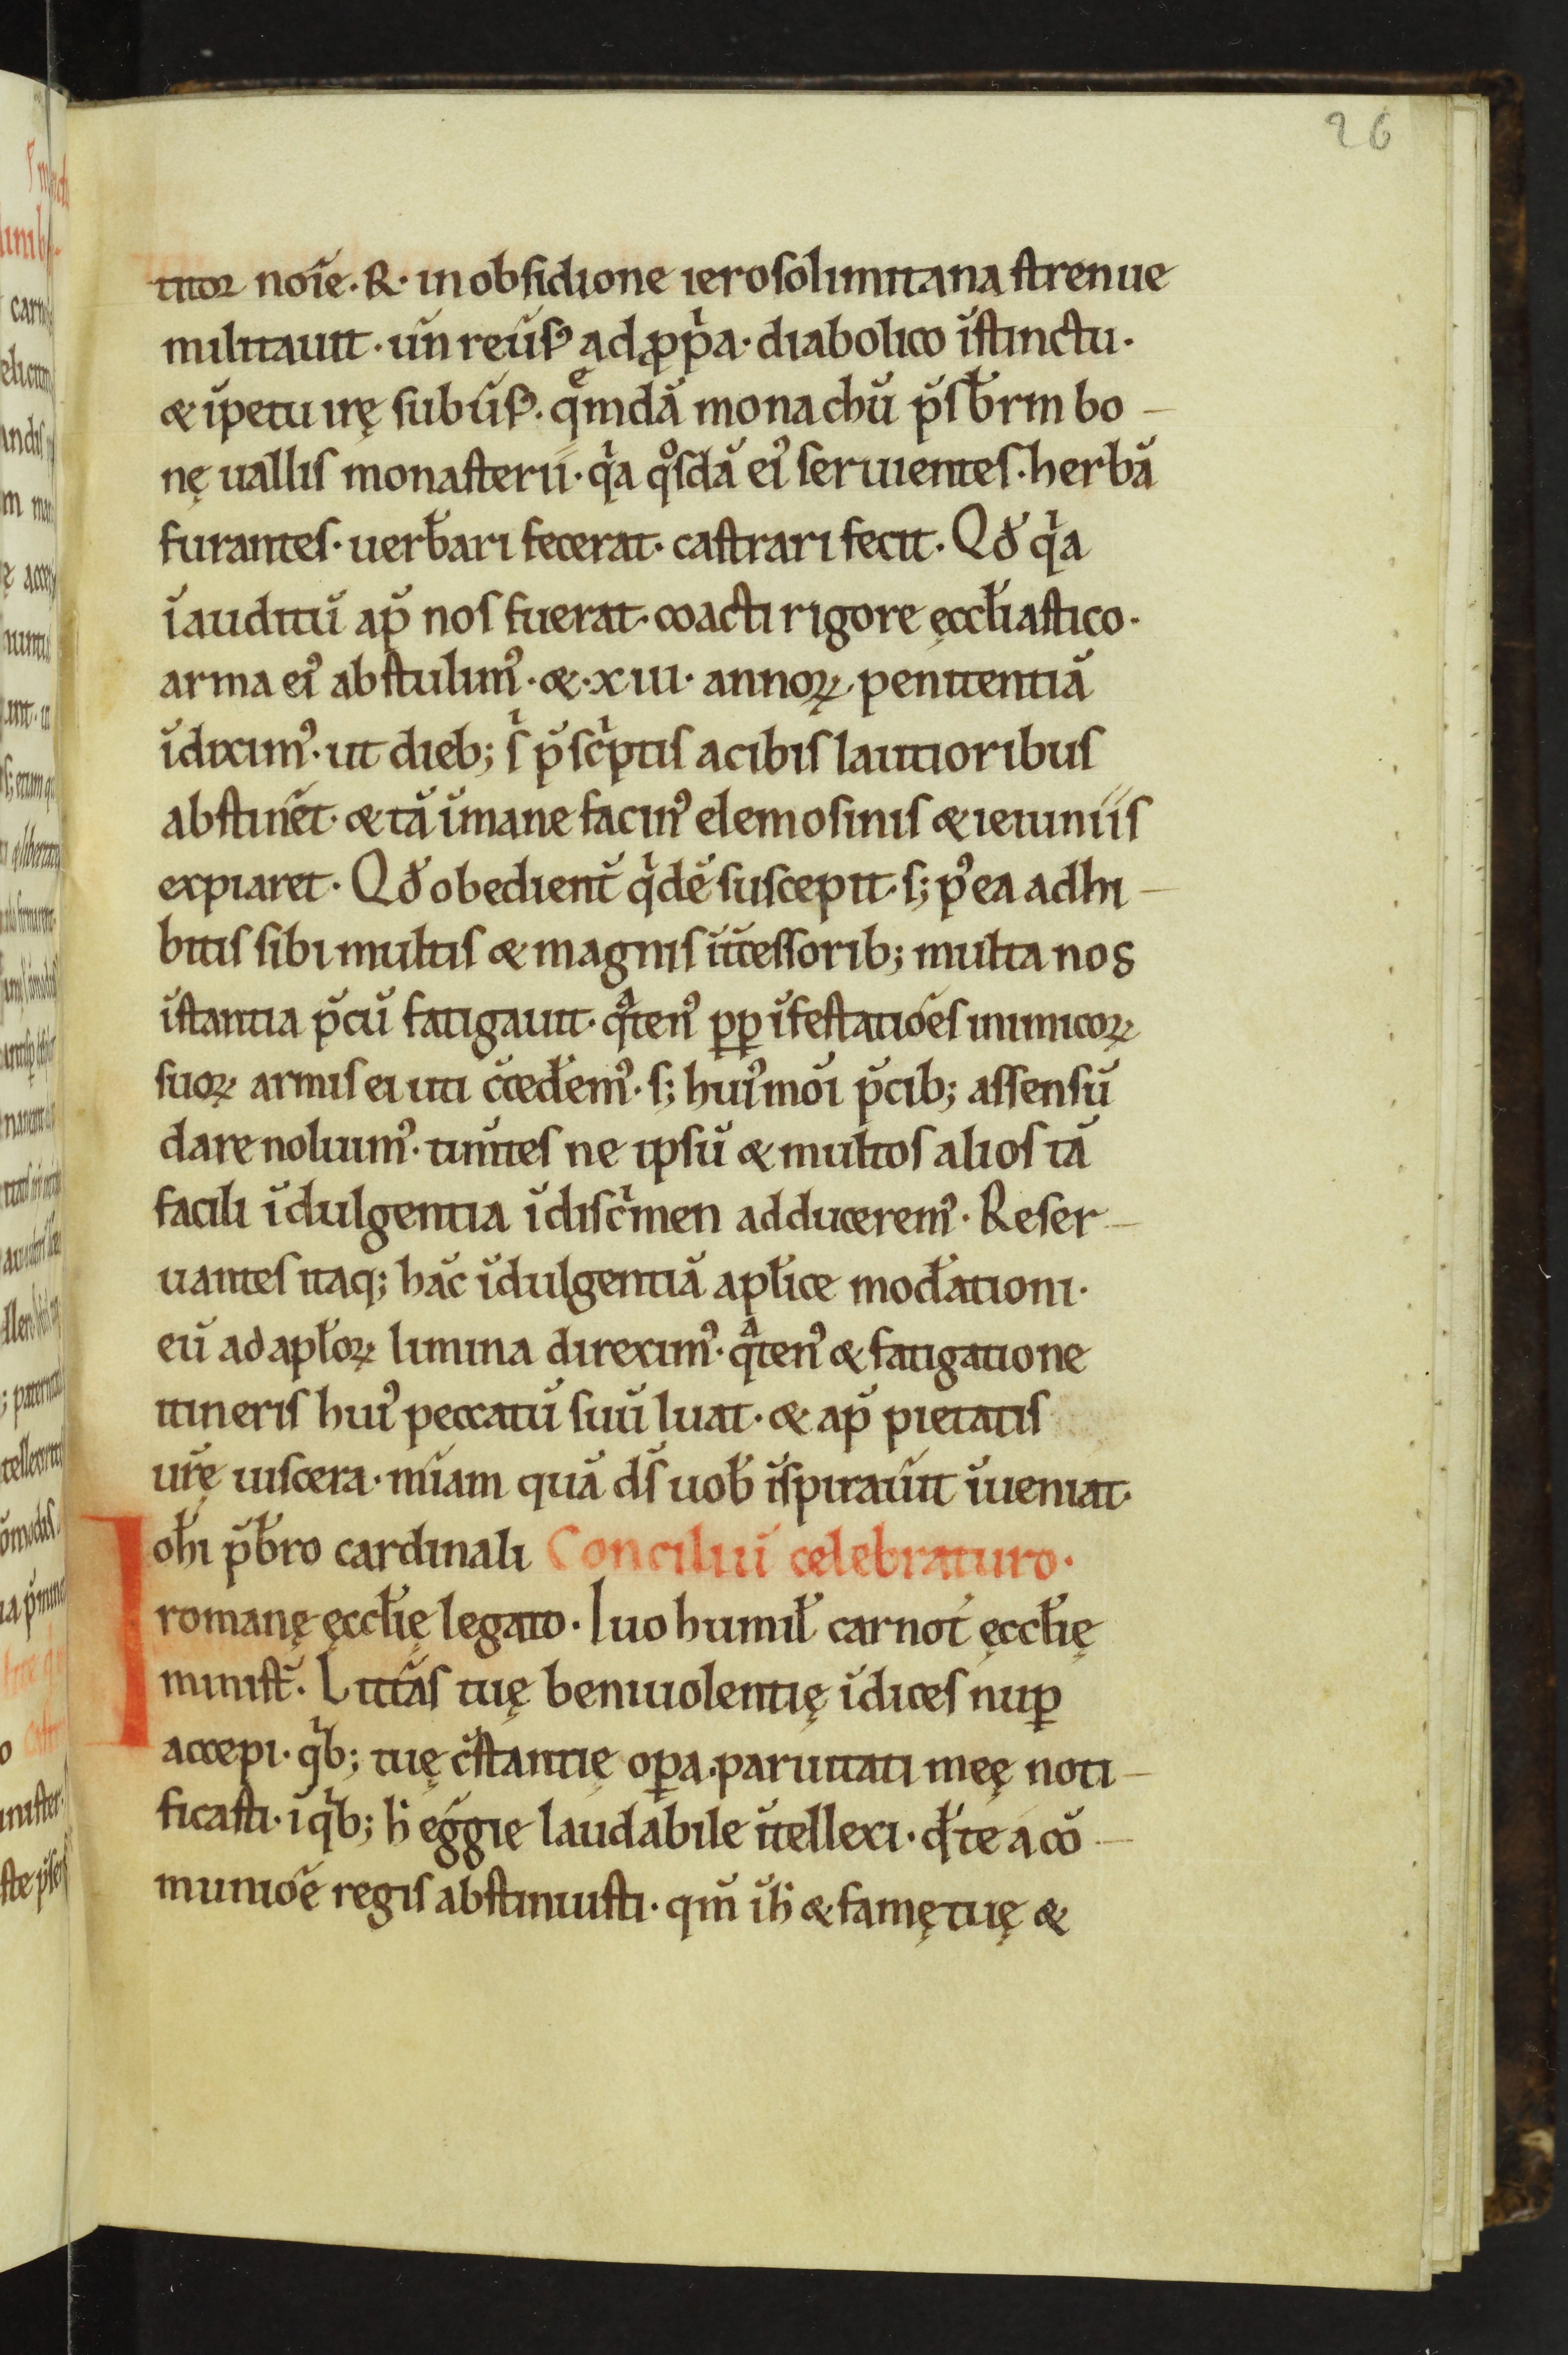 26
titor noīe · R · in obsidione ierosolimitana strenue
militauit · un̄ reūsꝰ ad ꝓpⁱa · diabolico īstinctu ·
& īpetu irę subūsꝰ · qͤmdā monachū p̄sb̄rm bo-
nę uallis monasterii · qⁱa qͦsdā eiꝰ seruientes · herbā
furantes · uerb̄ari fecerat · castrari fecit · Qd̄ qⁱa
īauditū ap̄ nos fuerat · coacti rigore ęccl̄iastico ·
arma eiꝰ abstulimꝰ · & · xiiii · annoꝝ penitentiā
īdiximꝰ · ut dieb; sⁱ p̄scⁱptis a cibis lautioribus
abstin̄et · & tā īmane facinꝰ elemosinis & ieiuniis
expiaret · Qd̄ obedient̄ qⁱdē suscepit · s; pꝰea adhi-
bitis sibi multis & magnis īt̄cessorib; multa nos
īstantia p̄cū fatigauit · qͣtenꝰ ꝓp īfestatiōes inimicoꝝ
suoꝝ armis ei uti c̄ced̄emꝰ · s; huiꝰmōi p̄cib; assensū
dare noluimꝰ · tim̄tes ne ipsū & multos alios tā
facili īdulgentia ī discⁱmen adduceremꝰ · Reser-
uantes itaq; hāc īdulgentiā apl̄ice mod̄ationi ·
eū ad apl̄oꝝ limina direximꝰ · qͣtenꝰ & fatigatione
itineris huiꝰ peccatū suū luat · & ap̄ pietatis
ur̄ę uiscera · mīam quā ds̄ uob̄ īspirau̅it īueniat ·
Ioh̄i p̄b̄ro cardinali Conciliū celebraturo ·
romanę ęccl̄ię legato · Iuo humil̄ carnot̄ ęccl̄ię
minist̄ · Litt̄as tuę beniuolentię īdices nuꝑ
accepi · qⁱb; tuę c̄stantię oꝑa paruitati meę noti-
ficasti · ī qⁱb; h̄ eḡgie laudabile īt̄ellexi · qd̄ te a cō-
muniōe regis abstinuisti · qm̄ ī h̄ & famę tuę &